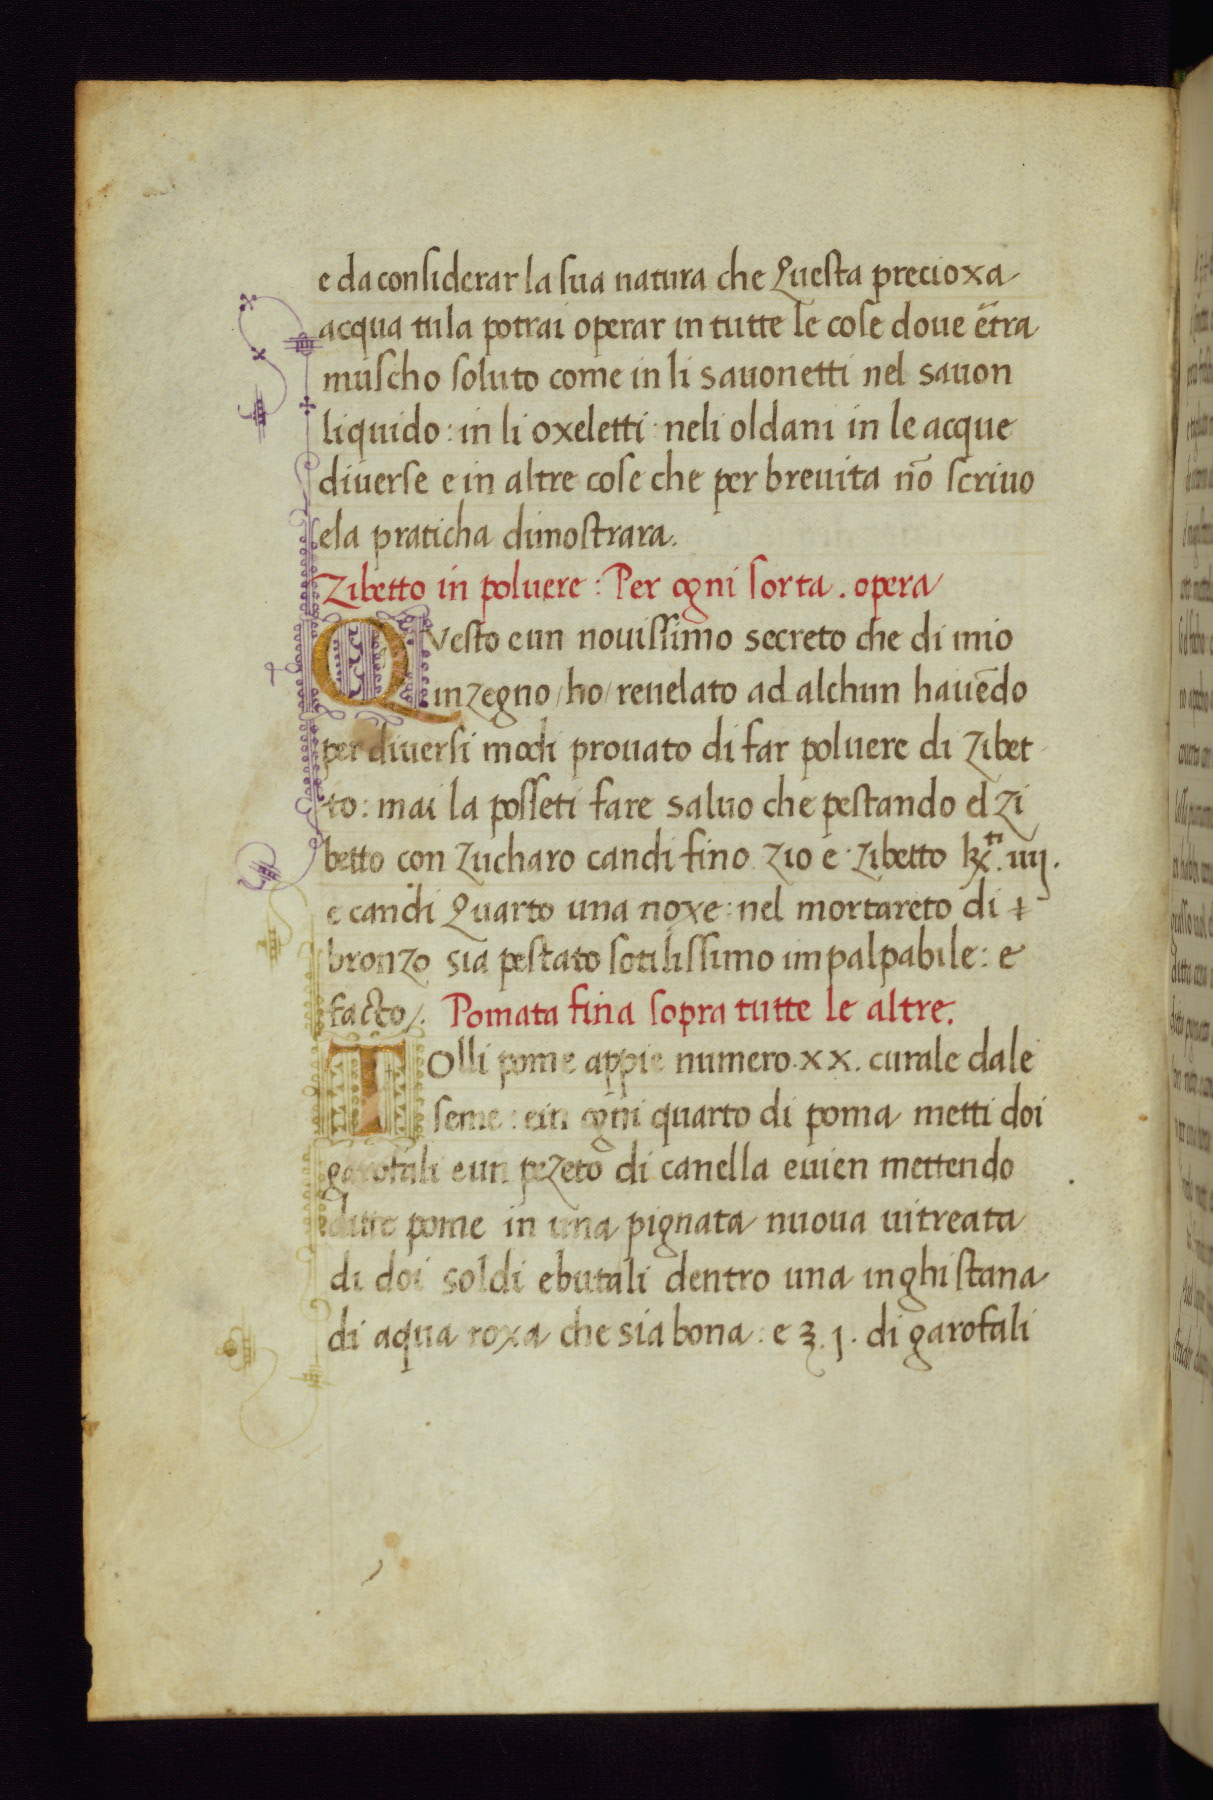 e da considerar la sua natura che Questa precioxa
acqua tu la potrai operar in tutte le cose doue ētra
muscho soluto come in li sauonetti nel sauon
liquido : in li oxeletti · neli oldani in le acque
diuerse e in altre cose che per breuita nō scriuo
e la praticha dimostrara.
Zibetto in poluere : Per ogni sorta . opera
QVesto e un nouissimo secreto che di mio
inzegno / ho / reuelato ad alchun hauēdo
per diuersi modi prouato di far poluere di Zibet
to : mai la posseti fare saluo che pestando el Zi
betto con Zucharo candi fino Zio e · Zibetto kr̃ti . iiij .
e candi Quarto una noxe : nel mortareto di
bronzo sia pestato sotilissimo impalpabile : e
facto /. Pomata fina sopra tutte le altre.
TOlli pome appie numero . xx . curale dale
seme : e in ogni quarto di poma metti doi
garofali e un pezeto di canella e uien mettendo
ditte pome in una pignata nuoua uitreata
di doi soldi e butali dentro una inghistana
di aqua roxa che sia bona : e ʒ . j . di garofali